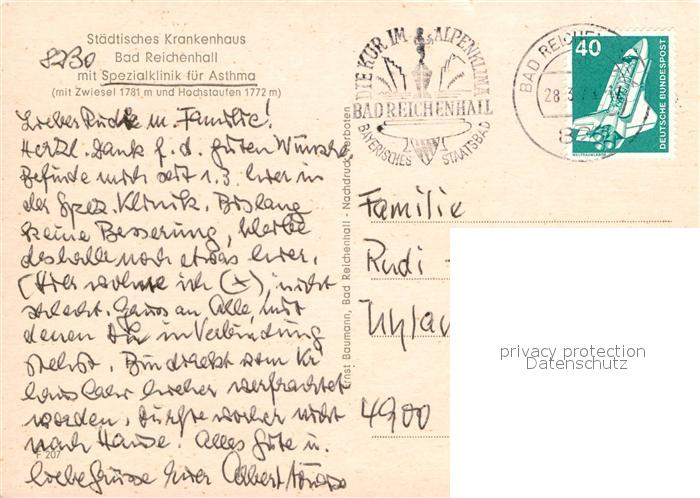 Städtisches Krankenhaus
8230
Bad Reichenhall
mit Spezialklinik für Asthma
(mit Zwiesel 1781 m und Hochstaufen 1772 m)
Lieber Rudi m. Familie!
Herzl. Dank f. d. guten Wünsche
Befinde mich seit 1.3. hier in
der Spez. Klinik. Bislang
keine Besserung, bleibe
deshalb noch etwas hier.
(Hier wohne ich (x), nicht
schlecht. Gruss an Alle, mit
denen Du in Verbindung
stehst. Bin direkt vom
hierher verfrachtet
worden, durfte vorher nicht
nach Hause. Alles Gute u.
liebe Grüsse Euer Albert
F 207
Ernst Baumann, Bad Reichenhall - Nachdruck verboten
DIE KUR IM ALPENKLIMA
BAD REICHENHALL
BAYERISCHES STAATSBAD
BAD REICHEN
28.3.
40
DEUTSCHE BUNDESPOST
WELTRAUMLABOR
Familie
Rudi
4900
privacy protection
Datenschutz